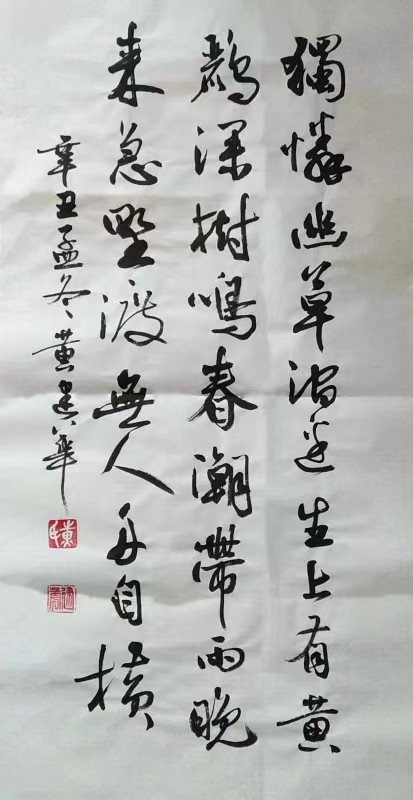 獨憐幽草澗邊生上有黄
鸝深樹鳴春潮帶雨晚
来急野渡無人舟自横
辛丑孟冬黄建華